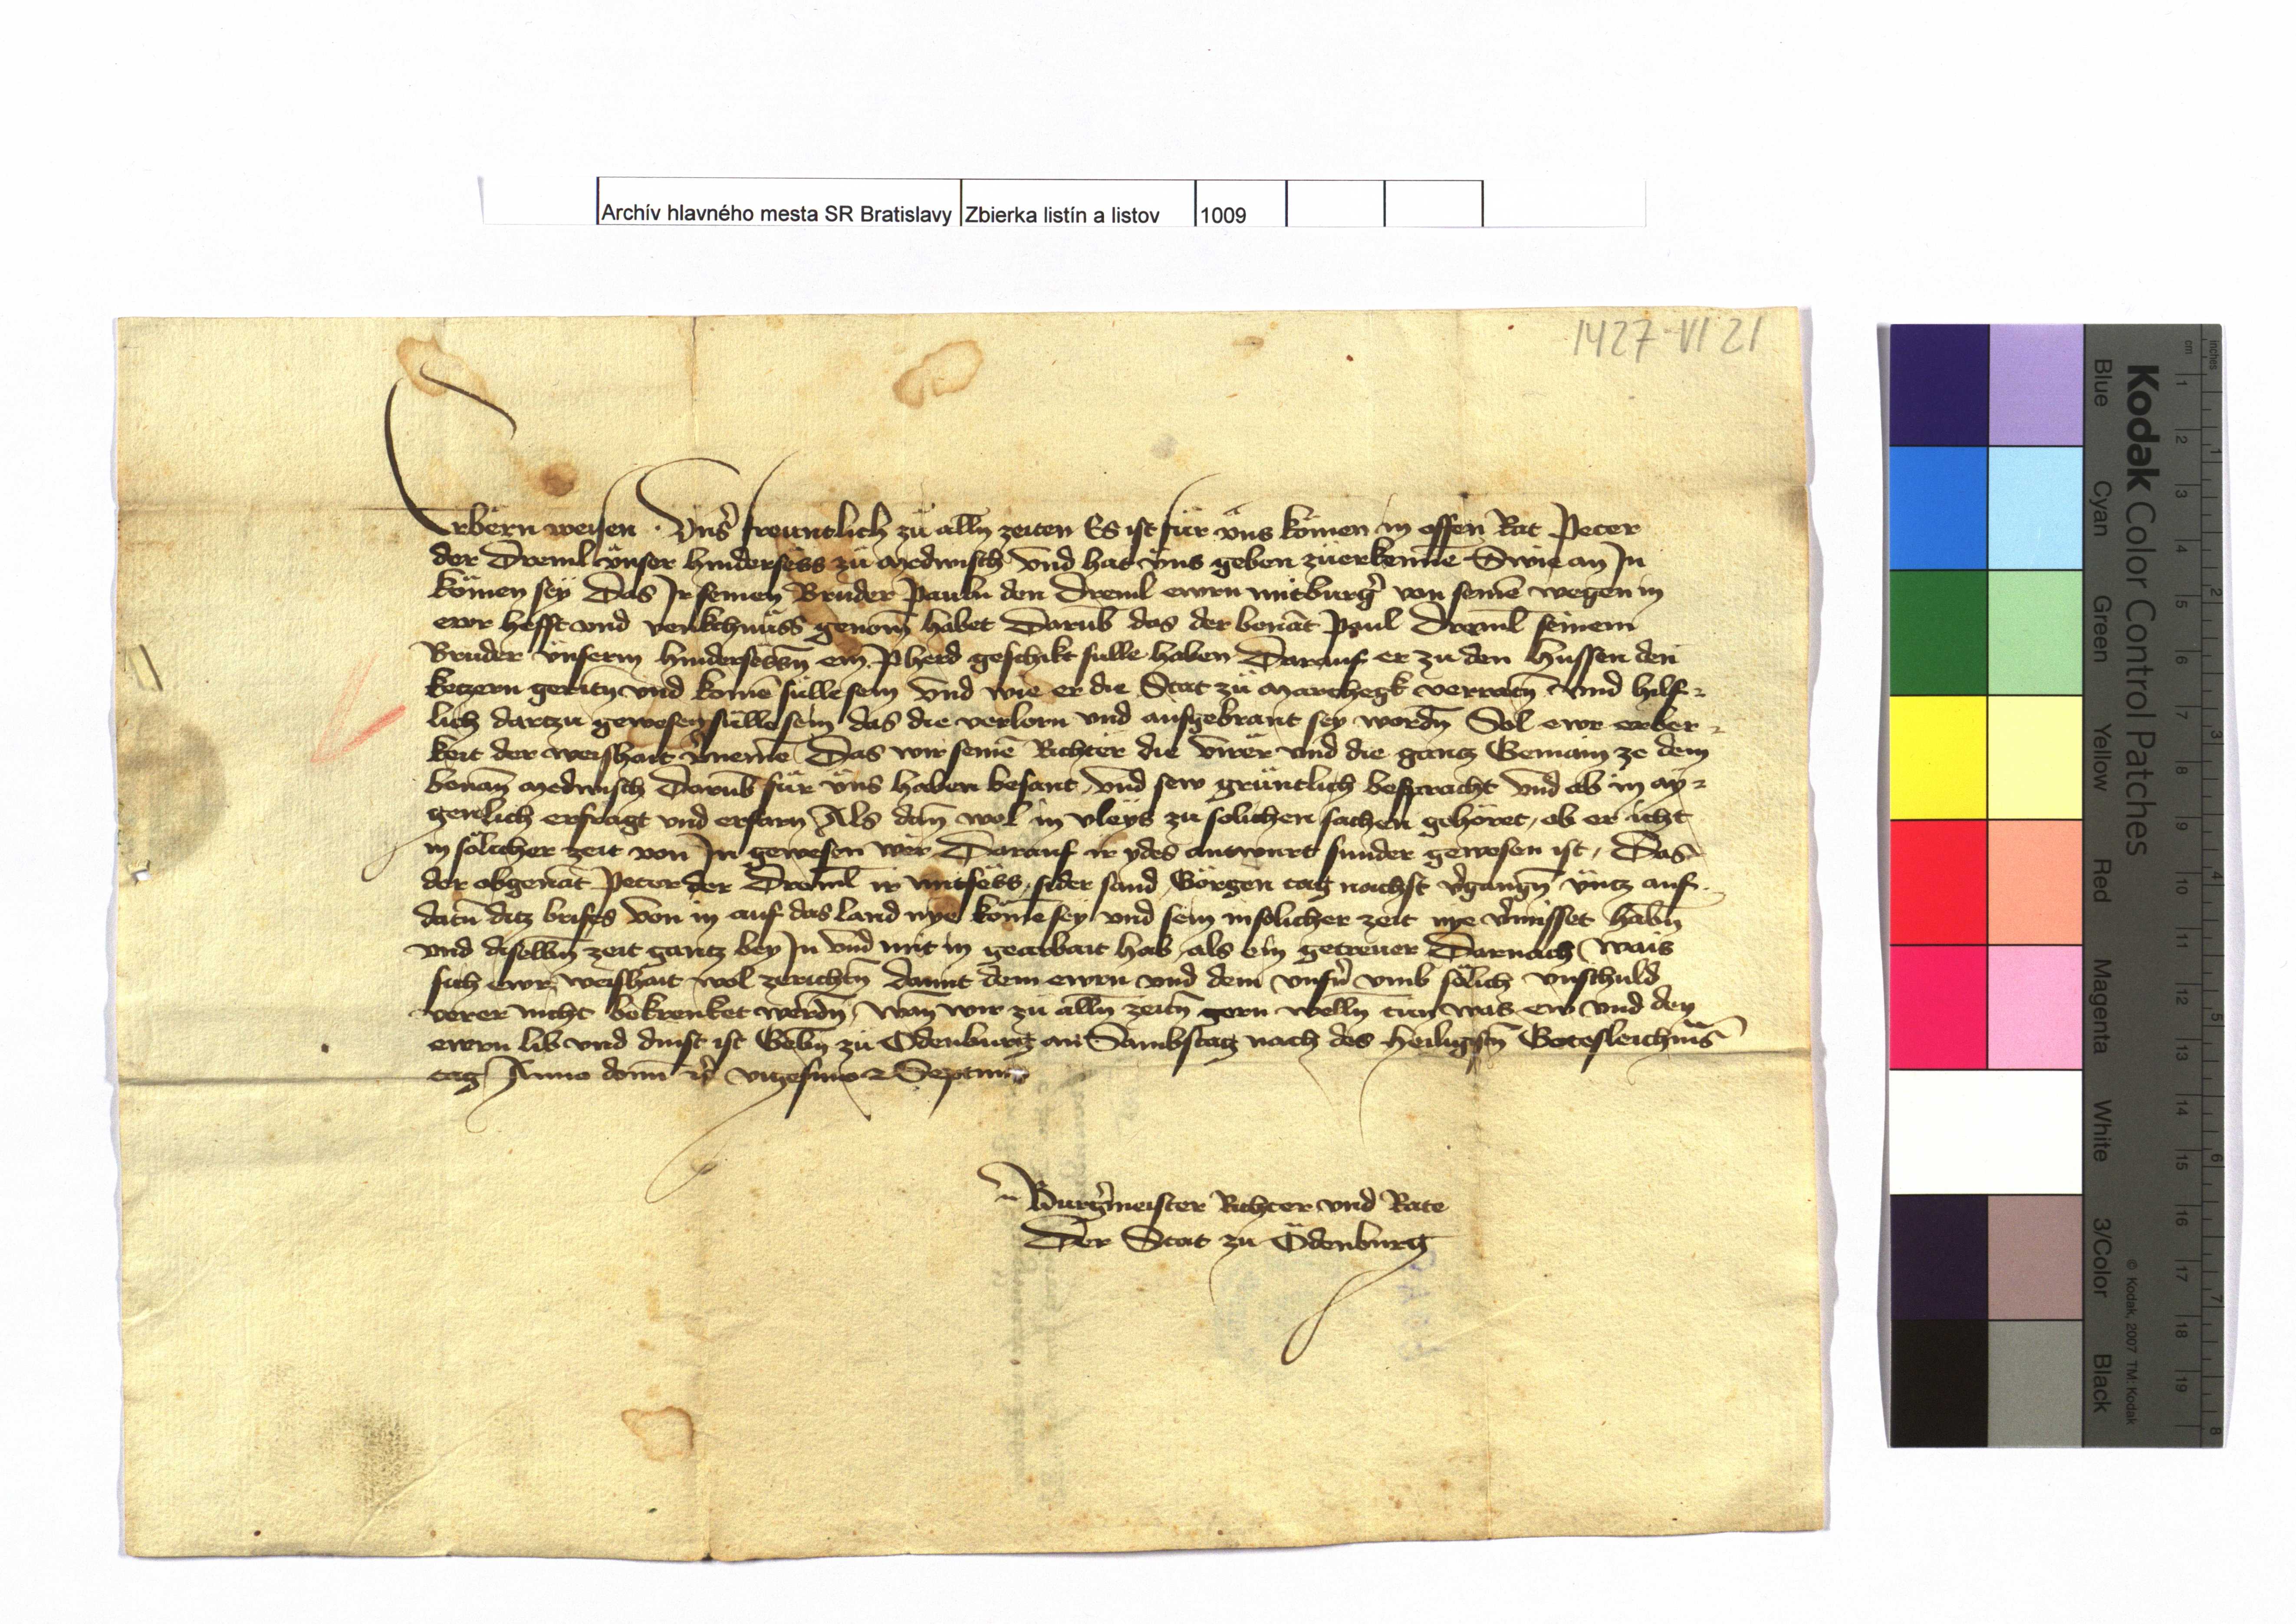 Archív hlavného mesta SR Bratislavy Zbierka listín a listov 1009
1427-VI 21
Erbern weisen · Vnser freuntlich zu alln zeiten Es ist für vns kömen in offen Rat Peter
der Dreml vnser hindersëss zü medwisch vnd hat vns geben züerkennē Swie an In
kömen sey Das Ir seinen Bruder Pauln den Dreml ewrn mitburgr̄ von seinē wegen in
ewr hefft vnd venkchnüss genom̄ habet Darūb das der benāt Paul Dreml seinem
Bruder vnserm hindersessn̄ ein Pherd geschikt sulle haben Darauf er zu den Hussen den
ketzern geritn̄ vnd komē sülle sein vnd wie er die Stat zü marchegk verratn̄ vnd hilf-
lich dartzu gewesen sülle sein das die verlorn vnd ausgebrant sey wordn̄ Sol ewr erber-
keit der weishait v̄nemē Das wir seinē Richter die virer vnd die gantz Gemain ze dem
benan̄ medwisch Darūb für vns haben besant vnd sew gruntlich bespracht vnd ab in ay-
genlich erfragt vnd erfarn Als dan̄ wol in vleys zu solichen sachen gehöret, ob er icht
in sölicher zeit von In gewesen wër Darauf ir ydes antwurt sunder gewesen ist, Das
der obgenāt Peter der Dreml ir mitsëss, sider sand Görgen tag nachst v̄gangn̄ vntz auf
datū ditz brifes von in auf das land nye komē sey vnd sein in solicher zeit nye v̄misset habn̄
vnd diselbn̄ zeit gantz bey In vnd mit in gearbait hab, als ein getrewer Darnach wais
sich ewr weishait wol zerichtn̄ damit dem ewrn vnd dem vnsrn̄ vmb sölich vnschuld
verer nicht bekrenket werdn̄, wan̄ wir zu alln̄ zeitn̄ gern welln̄ tun was ew vnd den
ewrn lib vnd dinst ist Gebn̄ zü Ödenburg an Sambstag nach des heiligistn̄ Gotesleichnā̄s
tag Anno domī zc̄ vigesimo Septimo
Burgermeister Richter vnd Rate
Der Stat zu Ödenburg
Kodak Color Control Patches
Blue Cyan Green Yellow Red Magenta White 3/Color Black
© Kodak, 2007 TM: Kodak
cm 1 2 3 4 5 6 7 8 9 10 11 12 13 14 15 16 17 18 19
inches 1 2 3 4 5 6 7 8